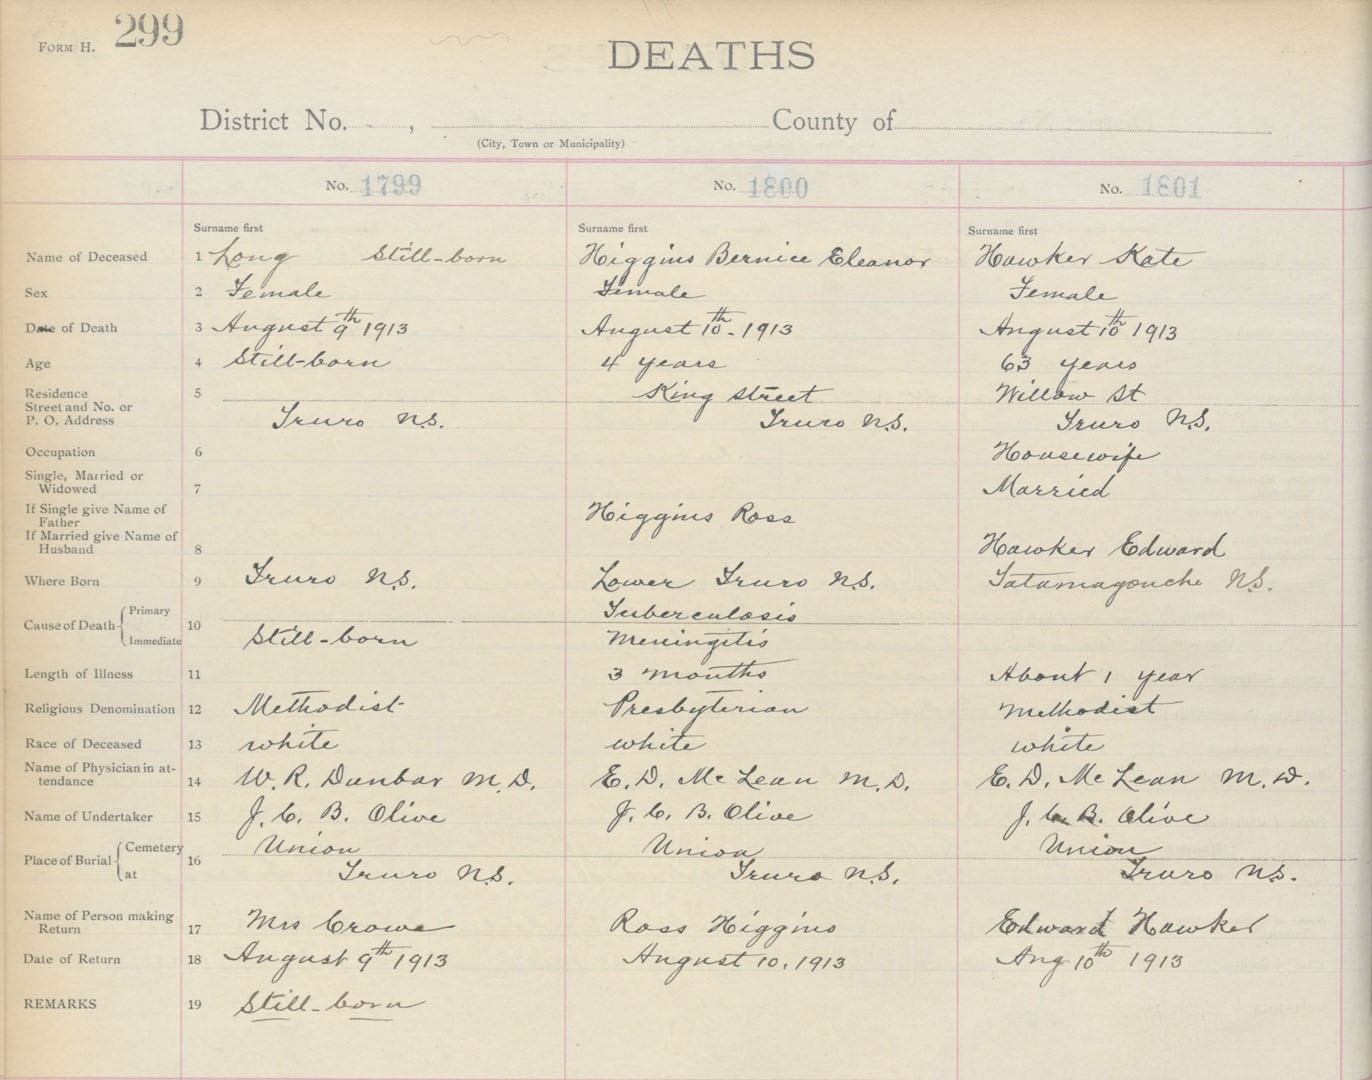 FORM H. 299
DEATHS
District No. , County of
(City, Town or Municipality)
No. 1799 No. 1800 No. 1801
Surname first Surname first Surname first
Name of Deceased 1 Long Still-born Higgins Bernice Eleanor Hawker Kate
Sex 2 Female Female Female
Date of Death 3 August 9th 1913 August 10th - 1913 August 10th 1913
Age 4 Still-born 4 years 63 years
Residence 5 King Street Willow St
Street and No. or
P. O. Address Truro N.S. Truro N.S. Truro N.S.
Occupation 6 Housewife
Single, Married or
Widowed 7 Married
If Single give Name of
Father Higgins Ross
If Married give Name of
Husband 8 Hawker Edward
Where Born 9 Truro N.S. Lower Truro N.S. Tatamagouche N.S.
Cause of Death { Primary 10 Tuberculosis
Immediate Still-born Meningitis
Length of Illness 11 3 months About 1 year
Religious Denomination 12 Methodist Presbyterian Methodist
Race of Deceased 13 white white white
Name of Physician in at-
tendance 14 W. R. Dunbar M.D. E. D. McLean M.D. E. D. McLean M.D.
Name of Undertaker 15 J. C. B. Olive J. C. B. Olive J. C. B. Olive
Place of Burial { Cemetery 16 Union Union Union
at Truro N.S. Truro N.S. Truro N.S.
Name of Person making
Return 17 Mrs Crowe Ross Higgins Edward Hawker
Date of Return 18 August 9th 1913 August 10, 1913 Aug 10th 1913
REMARKS 19 Still-born